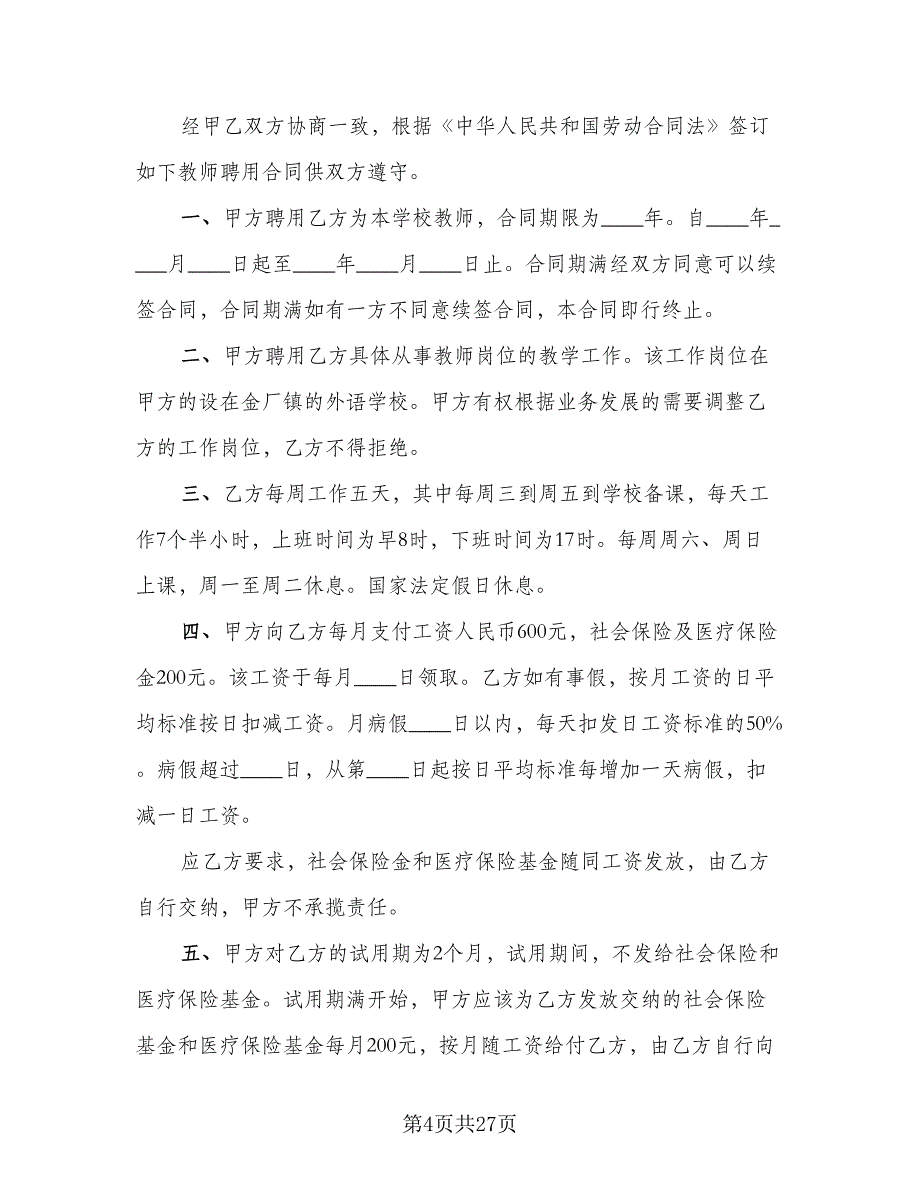 经甲乙双方协商一致，根据《中华人民共和国劳动合同法》签订
如下教师聘用合同供双方遵守。
一、甲方聘用乙方为本学校教师，合同期限为____年。自____年_
___月____日起至____年____月____日止。合同期满经双方同意可以续
签合同，合同期满如有一方不同意续签合同，本合同即行终止。
二、甲方聘用乙方具体从事教师岗位的教学工作。该工作岗位在
甲方的设在金厂镇的外语学校。甲方有权根据业务发展的需要调整乙
方的工作岗位，乙方不得拒绝。
三、乙方每周工作五天，其中每周三到周五到学校备课，每天工
作7个半小时，上班时间为早8时，下班时间为17时。每周周六、周日
上课，周一至周二休息。国家法定假日休息。
四、甲方向乙方每月支付工资人民币600元，社会保险及医疗保险
金200元。该工资于每月____日领取。乙方如有事假，按月工资的日平
均标准按日扣减工资。月病假____日以内，每天扣发日工资标准的50%
。病假超过____日，从第____日起按日平均标准每增加一天病假，扣
减一日工资。
应乙方要求，社会保险金和医疗保险基金随同工资发放，由乙方
自行交纳，甲方不承揽责任。
五、甲方对乙方的试用期为2个月，试用期间，不发给社会保险和
医疗保险基金。试用期满开始，甲方应该为乙方发放交纳的社会保险
基金和医疗保险基金每月200元，按月随工资给付乙方，由乙方自行向
第4页共27页